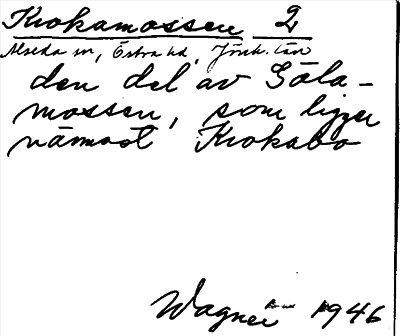 Krokamossen 2
Alseda sn, Östra hd, Jönk. län
den del av Göla-
mossen, som ligger
närmast Krokabo
Wagner 1946